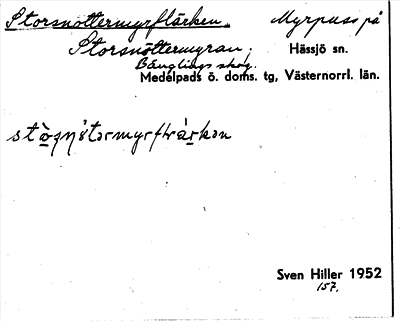 Storsnöttermyrflärken. Myrpuss på
Storsnöttermyran. Hässjö sn.
Bänglings skog.
Medelpads ö. doms. tg, Västernorrl. län.
Sven Hiller 1952
157.